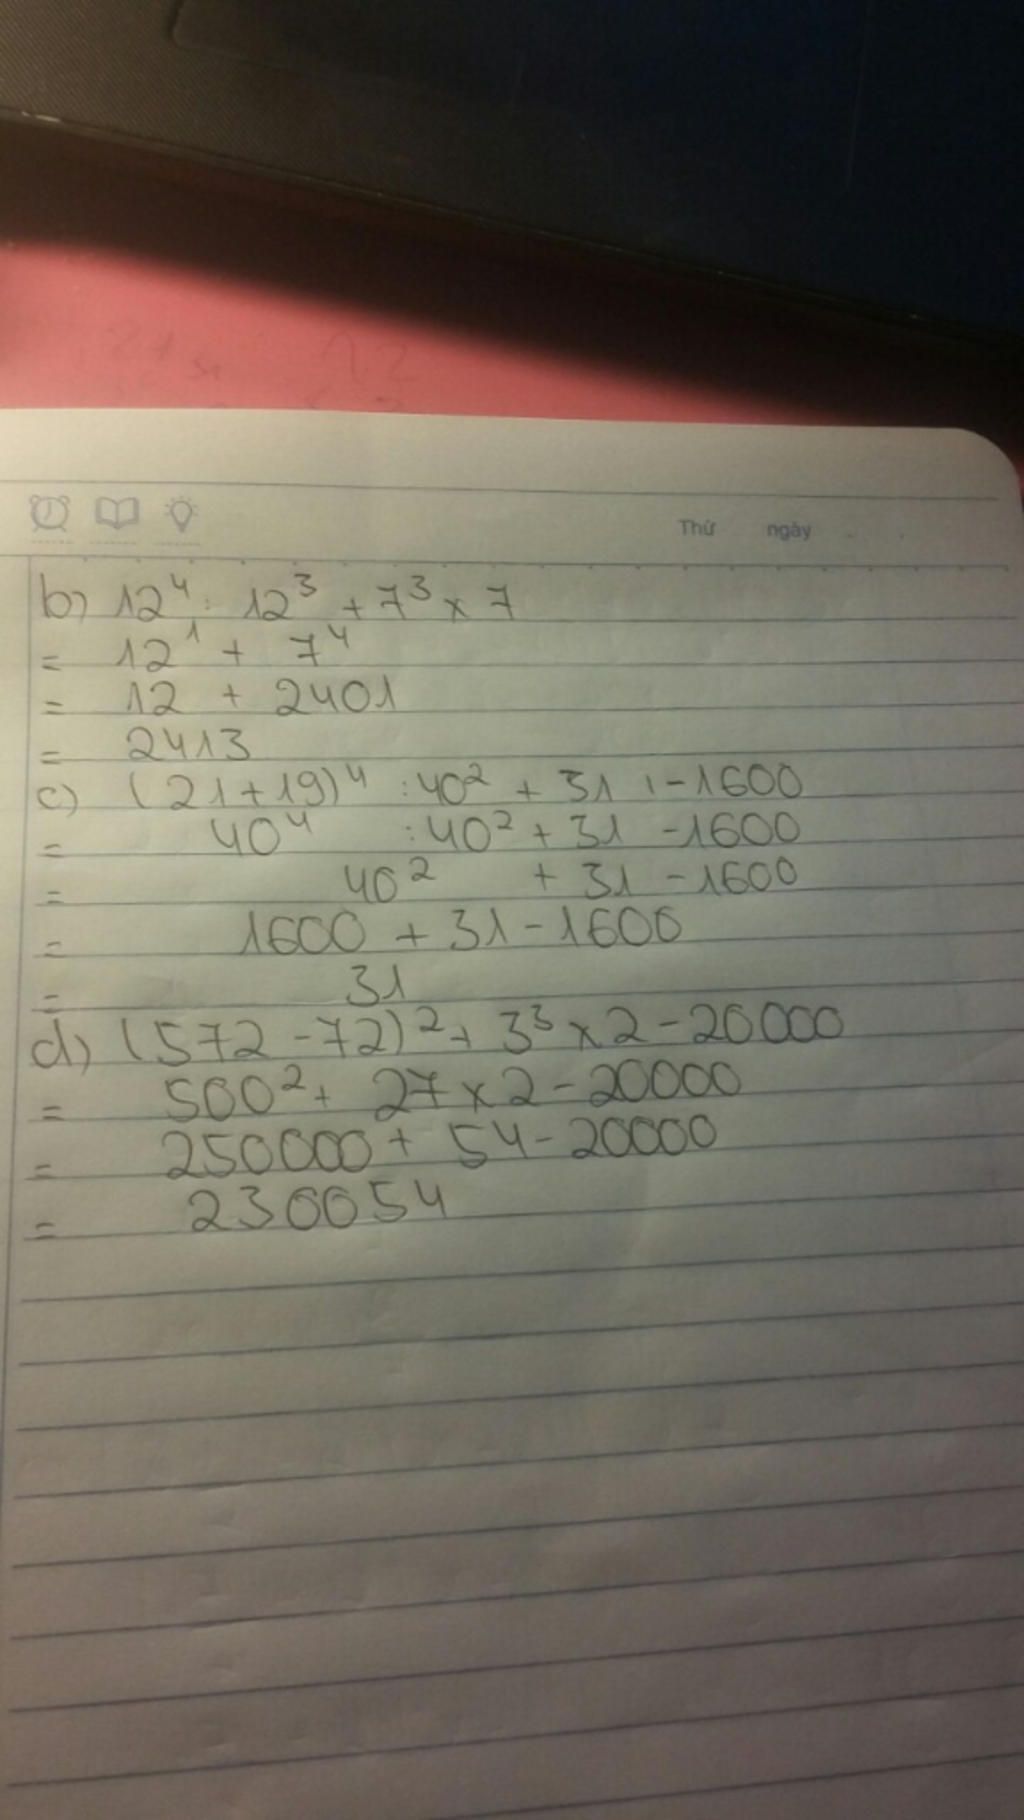 Thứ ngày
b) 12⁴ : 12³ + 7³ x 7
= 12¹ + 7⁴
= 12 + 2401
= 2413
c) (21+19)⁴ : 40² + 31 - 1600
= 40⁴ : 40² + 31 - 1600
= 40² + 31 - 1600
= 1600 + 31 - 1600
= 31
d) (572 - 72)² + 3³ x 2 - 20000
= 500² + 27 x 2 - 20000
= 250000 + 54 - 20000
= 230054